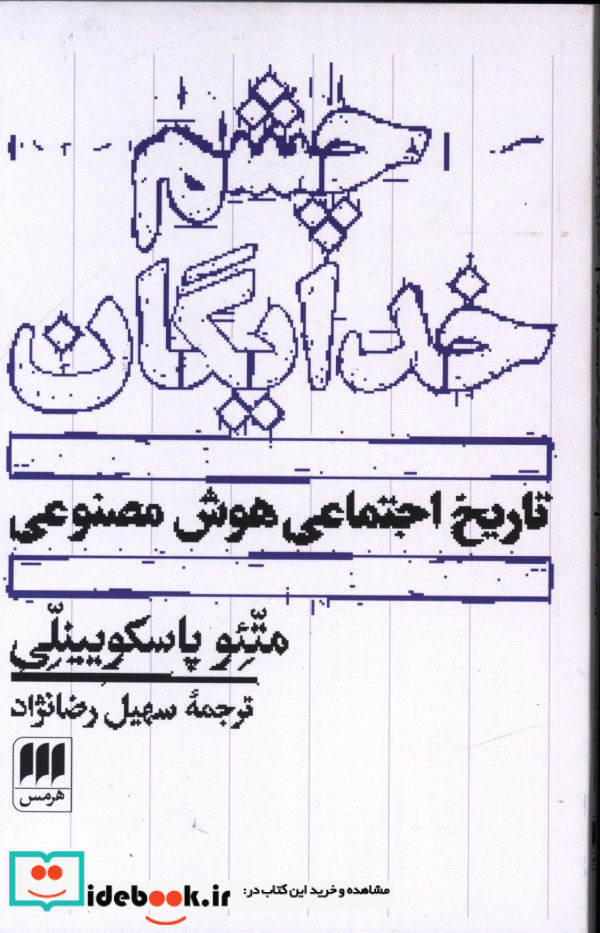 چشم
خدایگان
تاریخ اجتماعی هوش مصنوعی
متّئو پاسکویینلّی
ترجمهٔ سهیل رضانژاد
هرمس
مشاهده و خرید این کتاب در:
idebook.ir